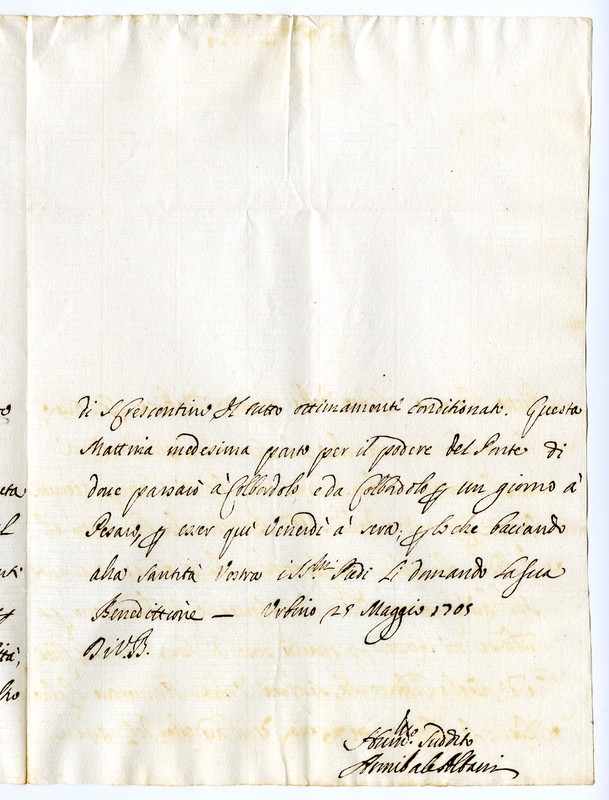 di S Crescentino, Il tutto ottimamente conditionato. Questa
Mattina medesima parto per il podere del Ponte di
doue passarò à Colbordolo e da Colbordolo p un giorno à
Pesaro, p esser qui Venerdi à sera; p lo che baciando
alla Santità Vostra i SSmi Piedi Li domando La sua
Benedittione — Urbino 25 Maggio 1705
Di V. B.
Humo Suddito
Annibale Albani